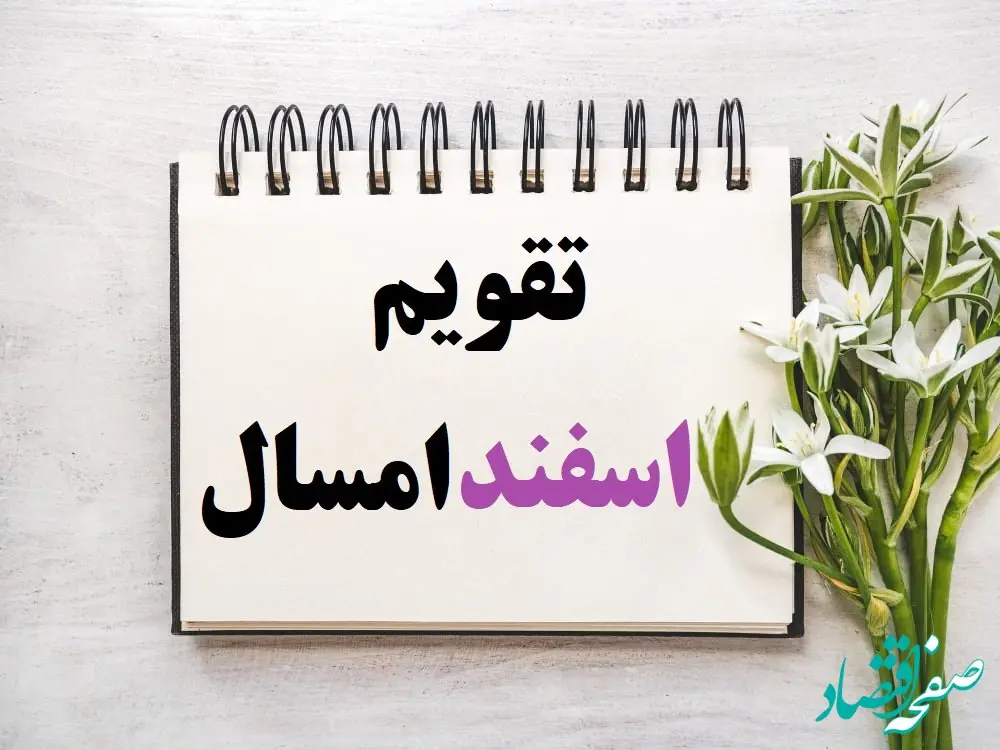 تقویم
اسفند امسال
صفحه اقتصاد